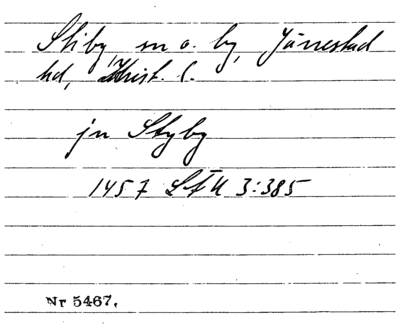 Stiby, sn o. by, Järrestad
hd, Krist. l.
jn Styby
1457 LFU 3:385
Nr 5467.